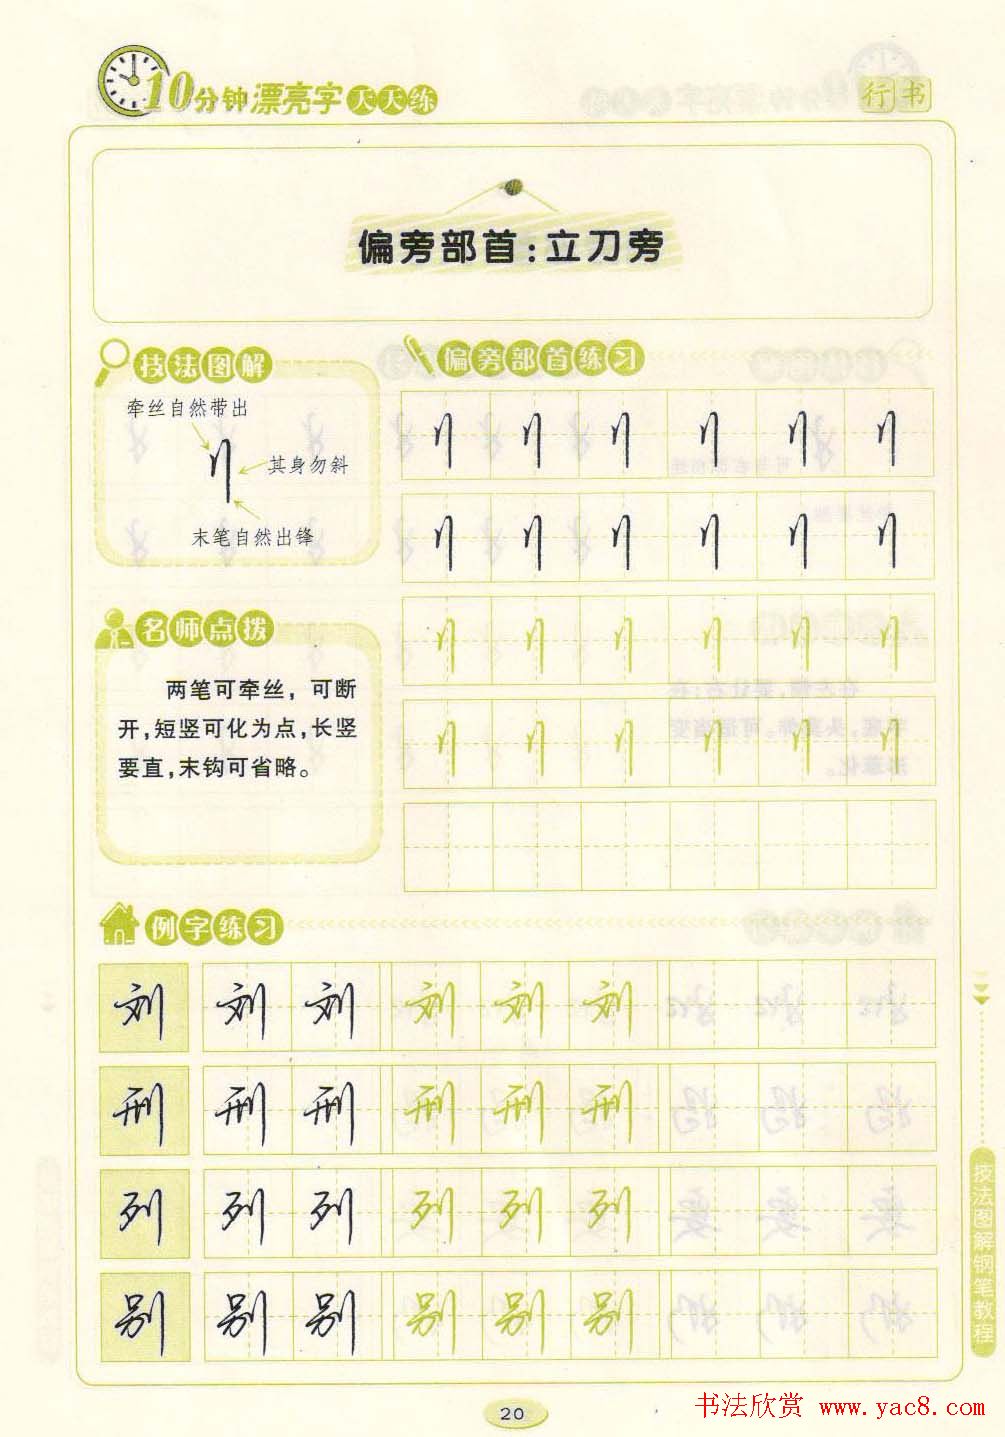 10分钟漂亮字天天练
行书
偏旁部首:立刀旁
技法图解
牵丝自然带出
其身勿斜
末笔自然出锋
偏旁部首练习
刂 刂 刂 刂 刂 刂
刂 刂 刂 刂 刂 刂
刂 刂 刂 刂 刂 刂
刂 刂 刂 刂 刂 刂
名师点拨
两笔可牵丝，可断
开，短竖可化为点，长竖
要直，末钩可省略。
例字练习
刘 刘 刘 刘 刘 刘
刑 刑 刑 刑 刑 刑
列 列 列 列 列 列
别 别 别 别 别 别
技法图解钢笔教程
20
书法欣赏 www.yac8.com